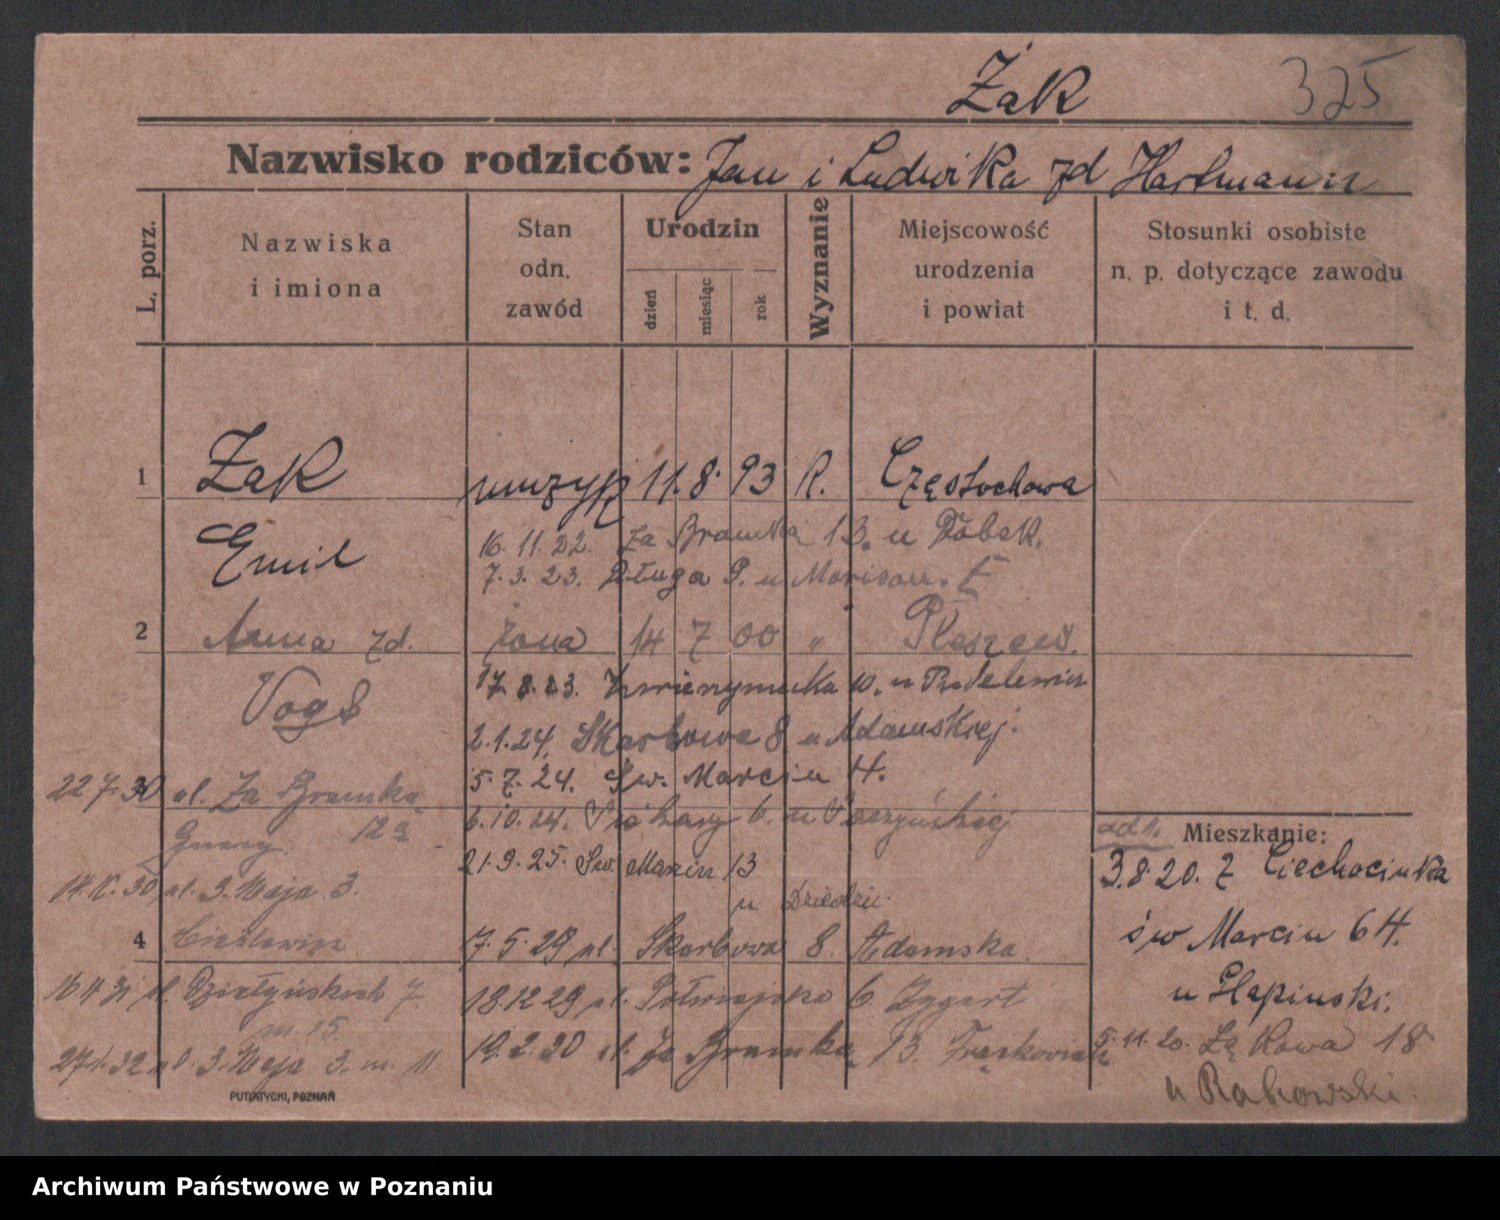 Żak 325
Nazwisko rodziców: Jan i Ludwika zd Hartmann
L. porz.
Nazwiska i imiona
Stan odn. zawód
Urodzin
dzień
miesiąc
rok
Wyznanie
Miejscowość urodzenia i powiat
Stosunki osobiste n. p. dotyczące zawodu i t. d.
1 Żak muzyk 11. 8. 93 R. Częstochowa
Emil
16. 11. 22. Za Bramką 13. u
7. 3. 23. Długa 9. u
2 Anna zd. żona 14 7 00 " Pleszew.
17. 8. 23. Zwierzyniecka 10. u
2. 1. 24. Skarbowa 8 u Adamskiej.
5. 7. 24. Św. Marcin 4.
22 7. 30 ul. Za Bramką 12a
6. 10. 24. 6. u
21. 9. 25. Św. Marcin 13
u
14. 30 ul. 3. Maja 3.
4 7. 5. 29 ul. Skarbowa 8. Adamska.
16. 4 31 ul. Działyńskich 7. m. 15
18. 12 29 ul. Półwiejska 6.
19. 2. 30 ul. Za Bramką 13.
27. 1. 32 ul. 3. Maja 3. m. 11
Mieszkanie:
3. 8. 20. z Ciechocinka
św Marcin 64.
u
5. 11. 20. Łąkowa 18
u Rakowski.
PUTIATYCKI, POZNAŃ
Archiwum Państwowe w Poznaniu